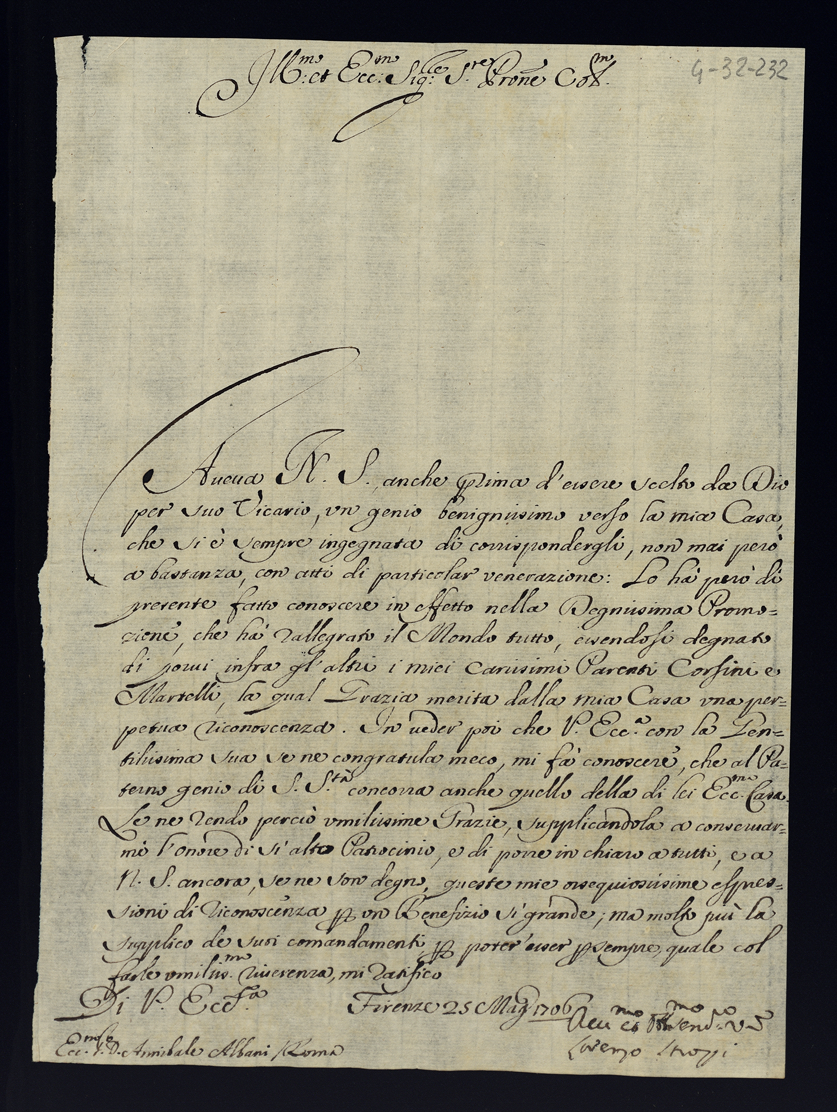 Ill.mo et Ecc.mo Sig.re S.re Prone Col.mo
9-32-232
Aueua N. S. anche prima d'essere scelto da Dio
per suo Vicario, vn genio benignissimo verso la mia Casa,
che si è sempre ingegnata di corrispondergli, non mai però
a bastanza, con atti di particolar venerazione: Lo hà però di
presente fatto conoscere in effetto nella Degnissima Promo=
zione, che hà rallegrato il Mondo tutto, essendosi degnato
di porui infra gl'altri i miei Carissimi Parenti Corsini e
Martelli, la qual Grazia merita dalla mia Casa vna per=
petua riconoscenza. In veder poi che V. Ecc.a con la Gen=
tilissima sua se ne congratula meco, mi fà conoscere, che al Pa=
terno genio di S. S.tà concorra anche quello della di lei Ecc.ma Casa.
Le ne rendo perciò vmilissime Grazie, supplicandola a conseruar=
mi l'onore di sì alto Patrocinio, e di porre in chiaro a tutti, e a
N. S. ancora, se ne son degno, queste mie ossequiosissime espres=
sioni di riconoscenza p vn Benefizio sì grande; ma molto più la
supplico de suoi comandamenti p poter'esser p sempre, quale col
farle vmiliss.ma riuerenza, mi ratifico
Di V. Ecc.za Firenze 25 Mag.o 1706
Deu.mo et
Ecc.mo S. D. Annibale Albani / Roma Lorenzo Strozzi